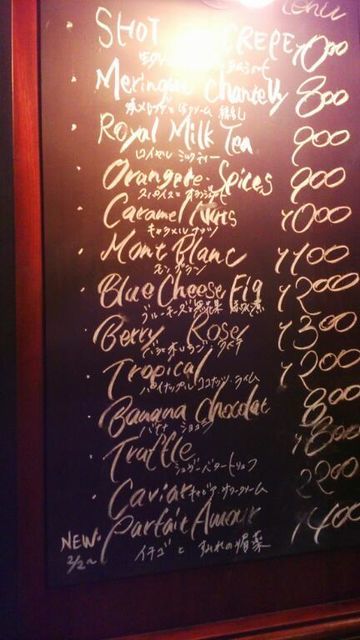 menu
SHOT CREPE 1000
Meringue Chantelly 800
Royal Milk Tea 900
ロイヤル ミルクティー
Orangere-Spices 900
スパイスと オランジェ
Caramel Nuts ¥1000
キャラメル ナッツ
Mont Blanc ¥1100
モンブラン
Blue Cheese Fig ¥1200
ブルーチーズと
Berry Rose ¥1300
Tropical ¥1200
パイナップル ココナッツ・ライム
Banana Chocolat 800
バナナ ショコラ
Truffle ¥1800
シュガーバタートリュフ
Caviar キャビア・サワークリーム 2200
NEW. Parfait Amour ¥1400
2/2~ イチゴ と すみれの